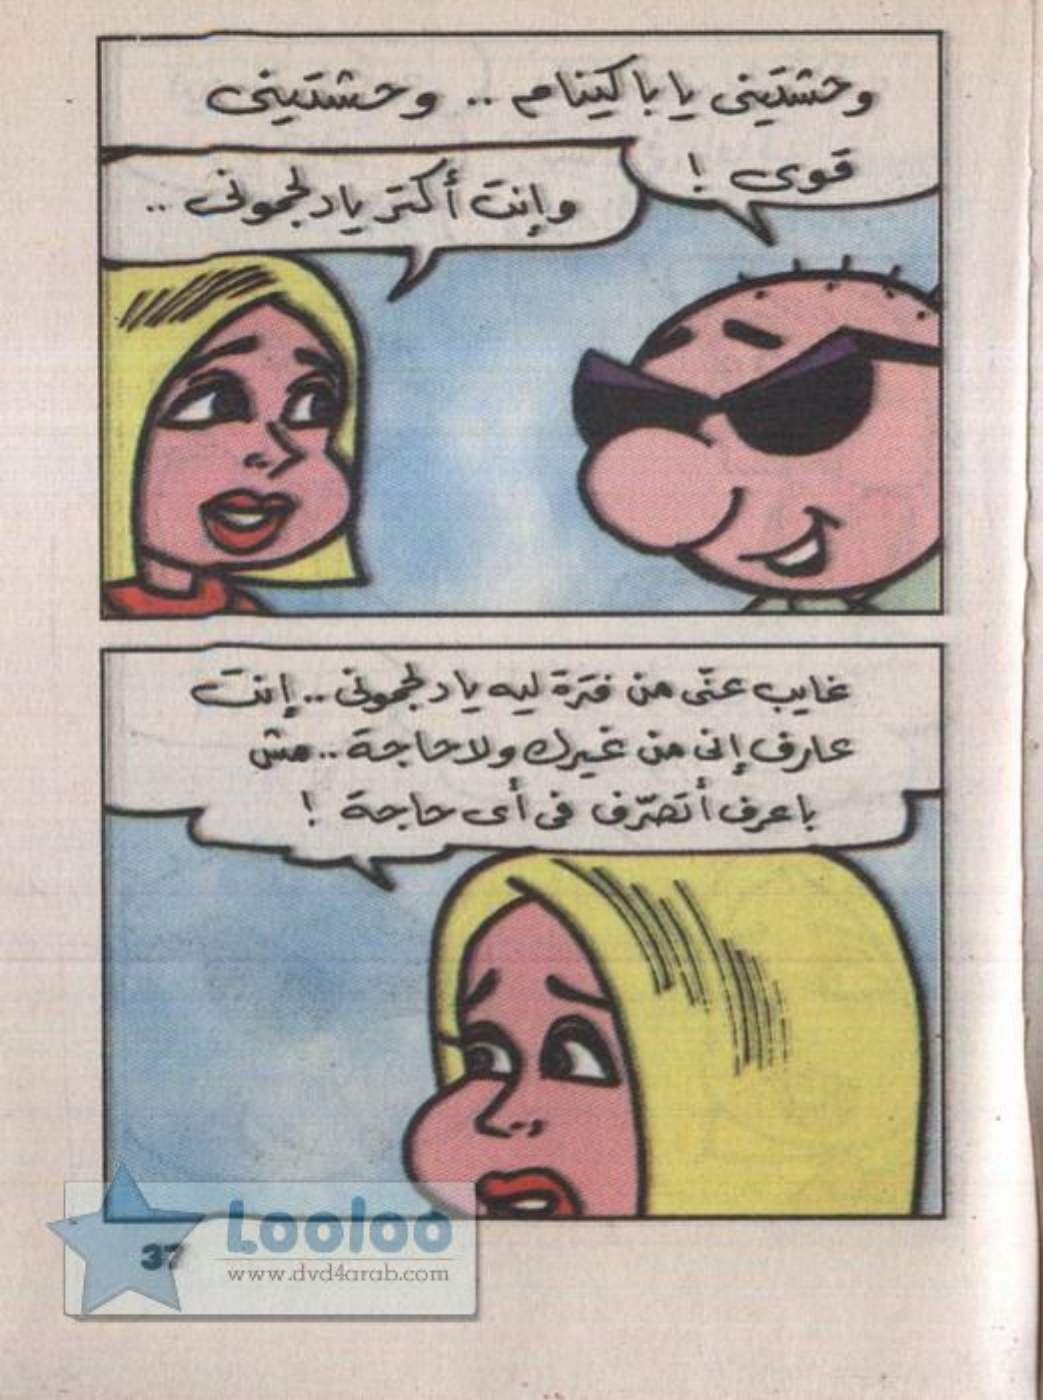 وحشتينى يا باكينام .. وحشتينى
قوى !
وإنت أكتر يا دلجمونى ..
غايب عنّى من فترة ليه يا دلجمونى .. إنت
عارف إنى من غيرك ولا حاجة .. مش
باعرف أتصرّف فى أى حاجة !
37
Looloo
www.dvd4arab.com